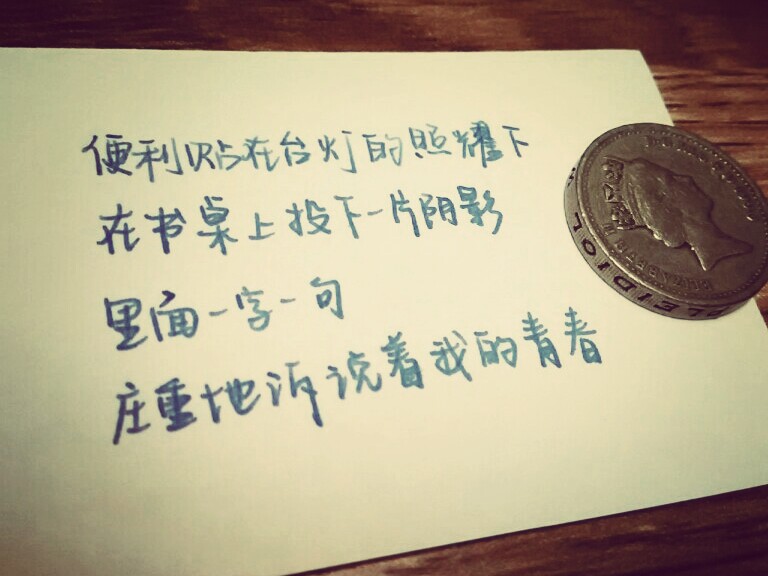 便利贴在台灯的照耀下
在书桌上投下一片阴影
里面一字一句
庄重地诉说着我的青春
ELIZABETH II
PLEIDIOL